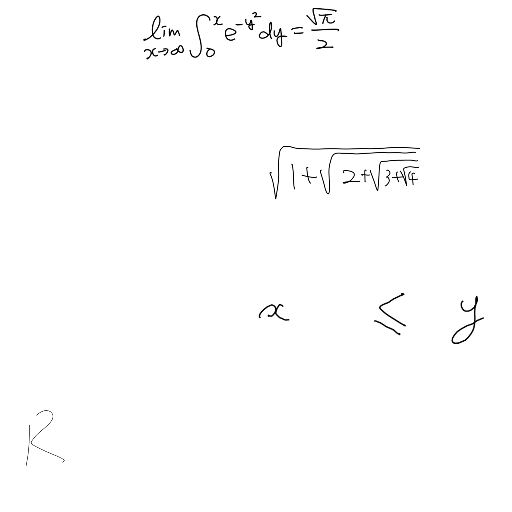 \lim_{x \to \infty} \int_0^x e^{-y^2} dy = \frac{\sqrt{\pi}}{2}
\sqrt{1+\sqrt{2+\sqrt{3+\sqrt{4}}}}
x \leq y
R